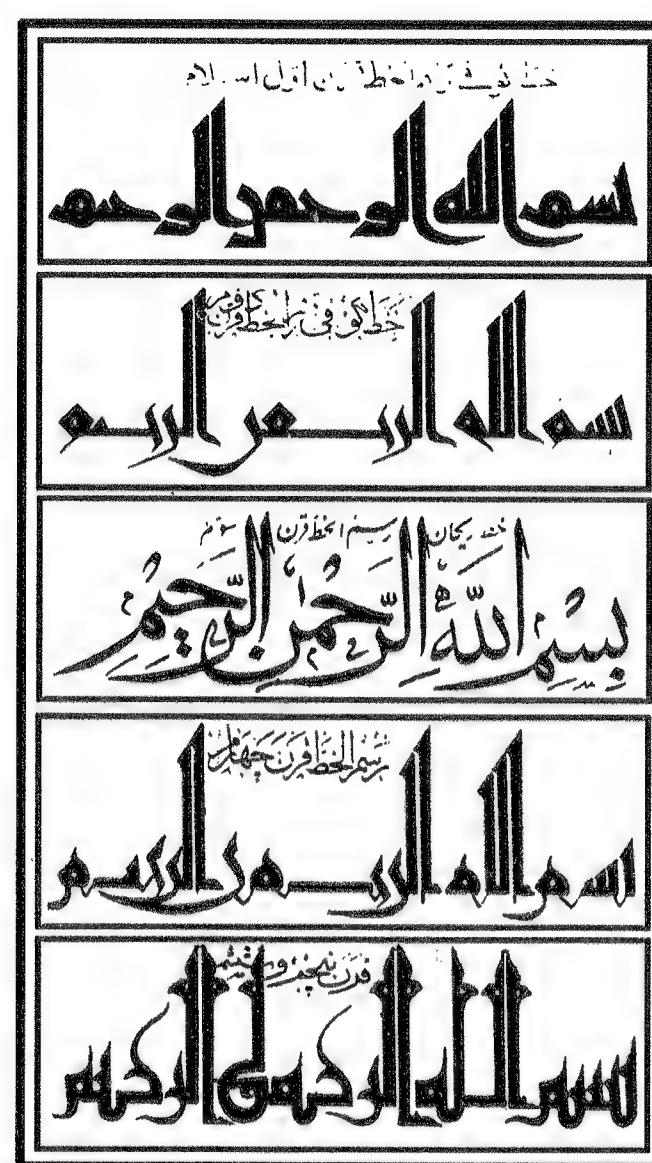 خط کوفی رسم الخط قرن اول اسلام
بسم الله الرحمن الرحیم
خط کوفی رسم الخط قرن دوم
بسم الله الرحمن الرحیم
خط ریحان رسم الخط قرن سوم
بِسْمِ اللّٰهِ الرَّحْمٰنِ الرَّحِیْمِ
رسم الخط قرن چهارم
بسم الله الرحمن الرحیم
قرن پنجم و ششم
بسم الله الرحمن الرحیم